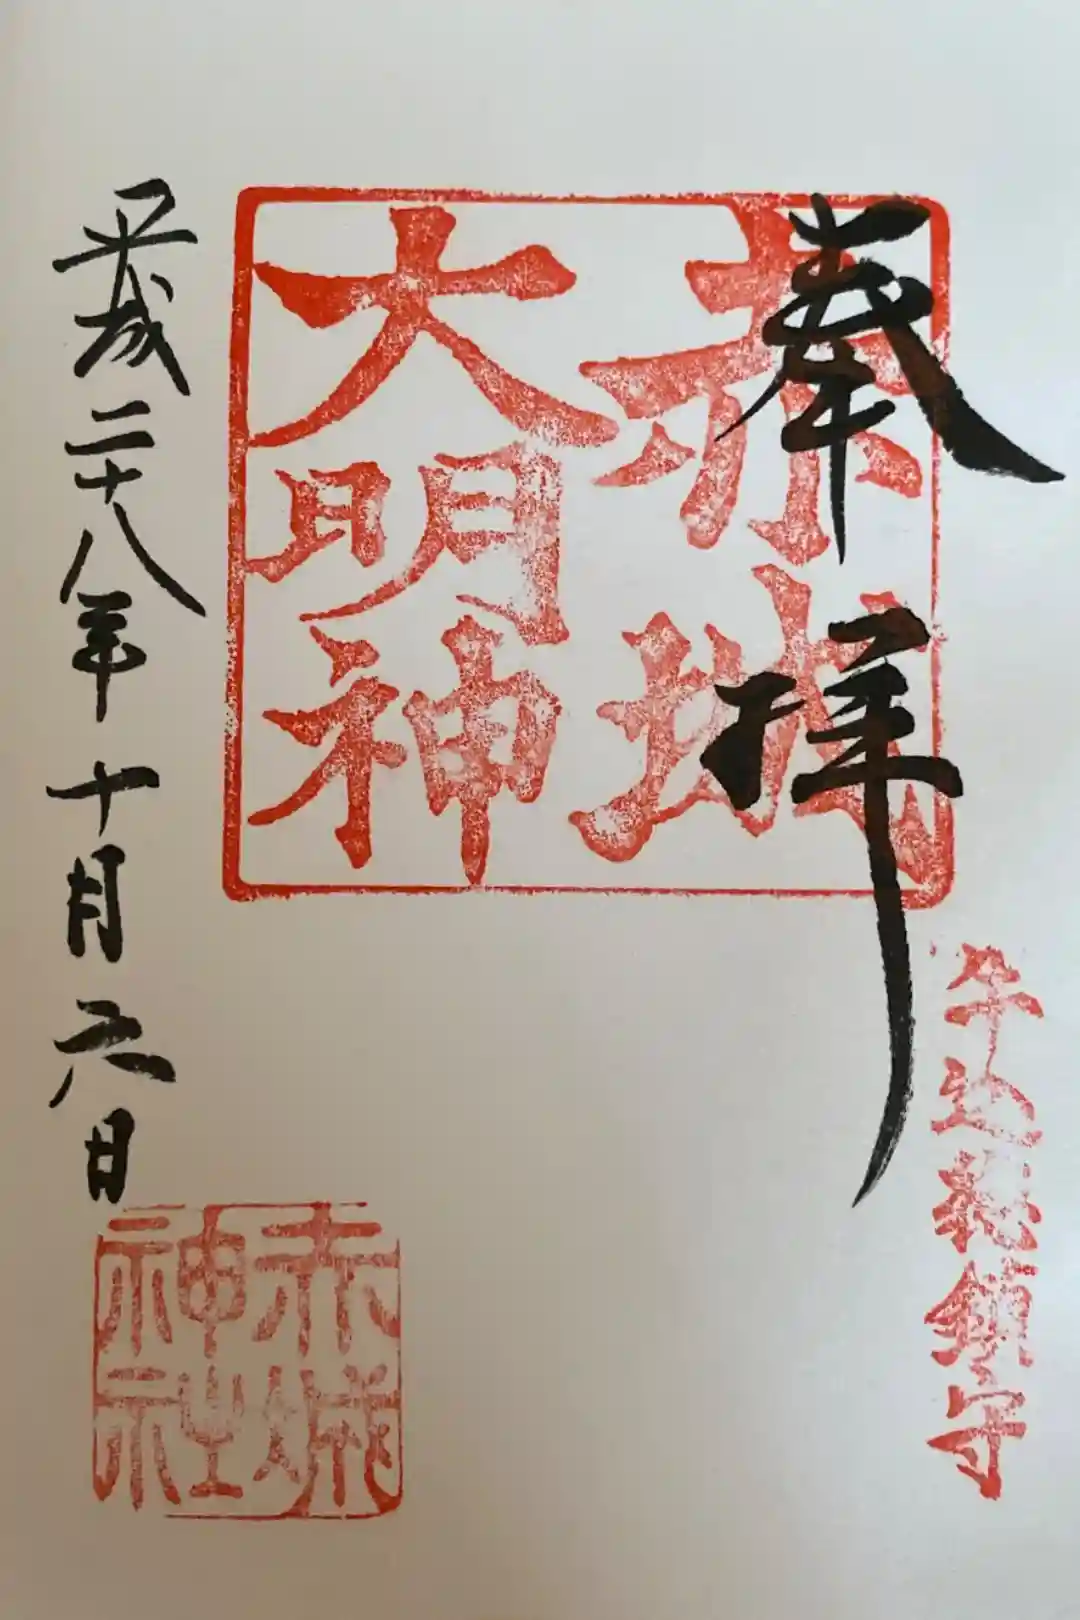 奉拝
牛込総鎮守
赤城
大明神
平成二十八年十月六日
赤城
神社